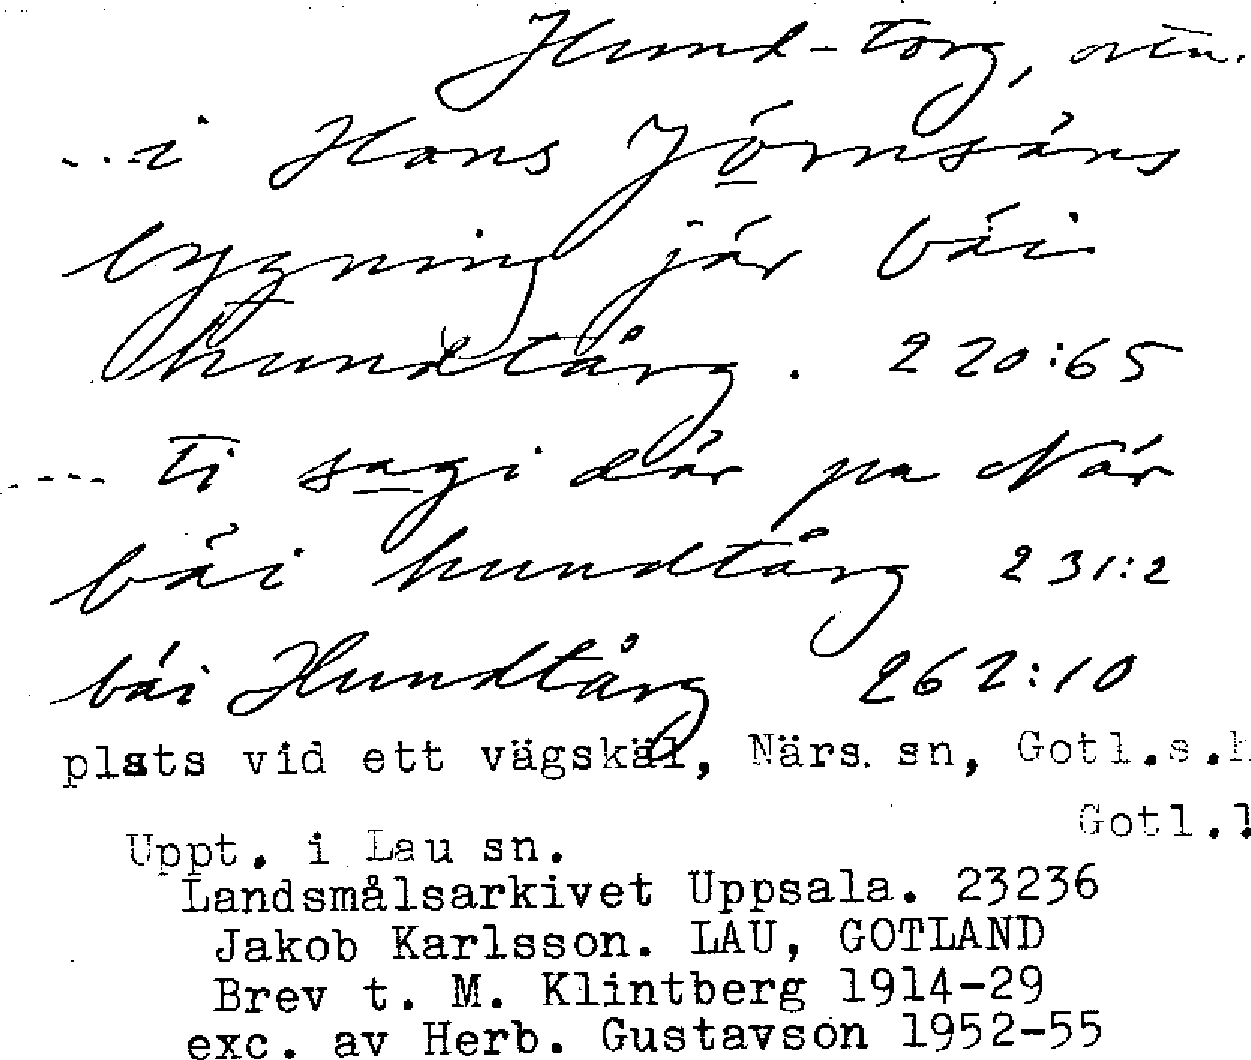 Hund-torg, otn.
...i Hans Jórnsárs
bygning jár bái
hundtårg. 220:65
.... ti sagi där pa När
bäi hundtårg 231:2
bái Hundtårg 262:10
plats vid ett vägskäl, Närs. sn, Gotl.s.h
Gotl.l
Uppt. i Lau sn.
Landsmålsarkivet Uppsala. 23236
Jakob Karlsson. LAU, GOTLAND
Brev t. M. Klintberg 1914-29
exc. av Herb. Gustavson 1952-55